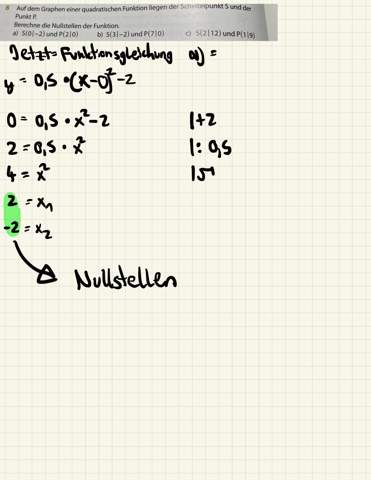 8 Auf dem Graphen einer quadratischen Funktion liegen der Scheitelpunkt S und der
Punkt P.
Berechne die Nullstellen der Funktion.
a) S(0|−2) und P(2|0) b) S(3|−2) und P(7|0) c) S(2|12) und P(1|9)
Jetzt= Funktionsgleichung a) =
y = 0,5 •(x-0)²-2
0 = 0,5 • x²-2 |+2
2 = 0,5 • x² |: 0,5
4 = x² |√
2 = x₁
-2 = x₂
Nullstellen